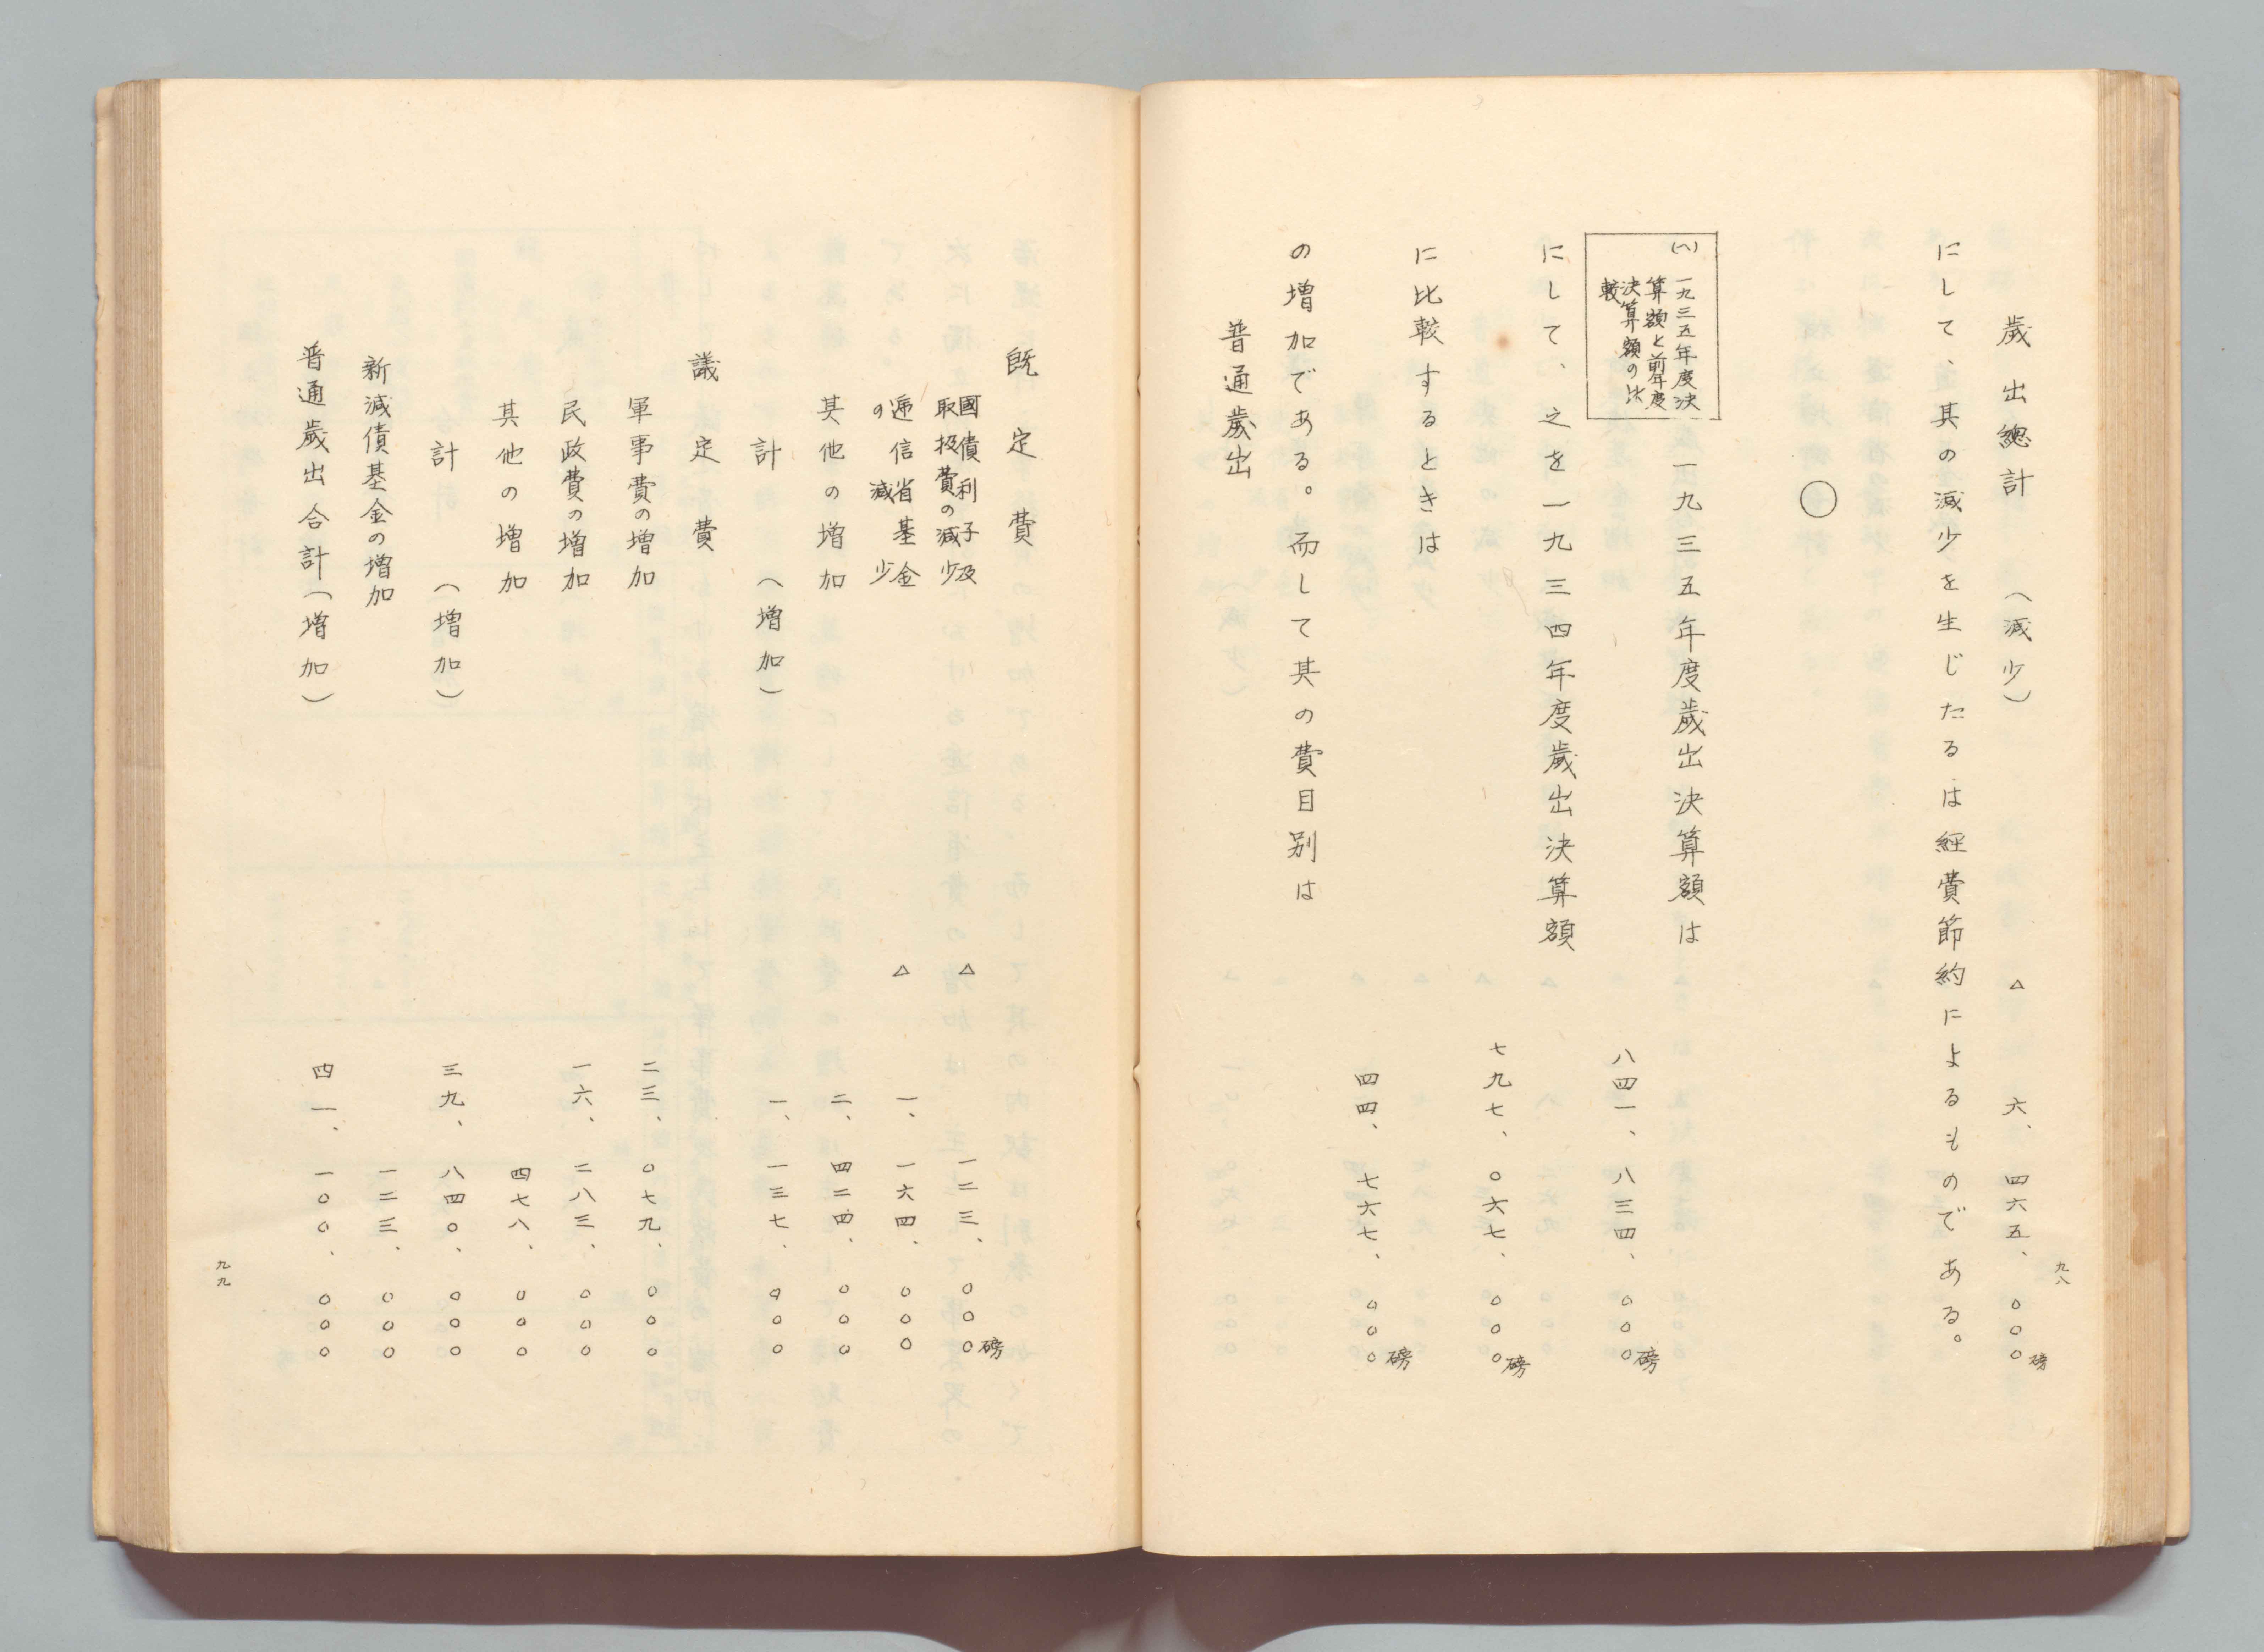 歲出總計　（減少）　△　六、四六五、〇〇〇磅
にして、其の減少を生じたるは經費節約によるものである。
〇
(八)　一九三五年度決
算額と前年度
決算額の比
較
一九三五年度歲出決算額は
八四一、八三四、〇〇〇磅
にして、之を一九三四年度歲出決算額
七九七、〇六七、〇〇〇磅
に比較するときは
四四、七六七、〇〇〇磅
の増加である。而して其の費目別は
普通歲出
九八
既定費
國債利子及
取扱費の減少　△　一二三、〇〇〇磅
遞信省基金
の減少　△　一、一六四、〇〇〇
其他の增加　二、四二四、〇〇〇
計　（增加）　一、一三七、〇〇〇
議定費
軍事費の增加　二三、〇七九、〇〇〇
民政費の增加　一六、二八三、〇〇〇
其他の增加　四七八、〇〇〇
計　（增加）　三九、八四〇、〇〇〇
新減債基金の增加　一二三、〇〇〇
普通歲出合計（增加）　四一、一〇〇、〇〇〇
九九